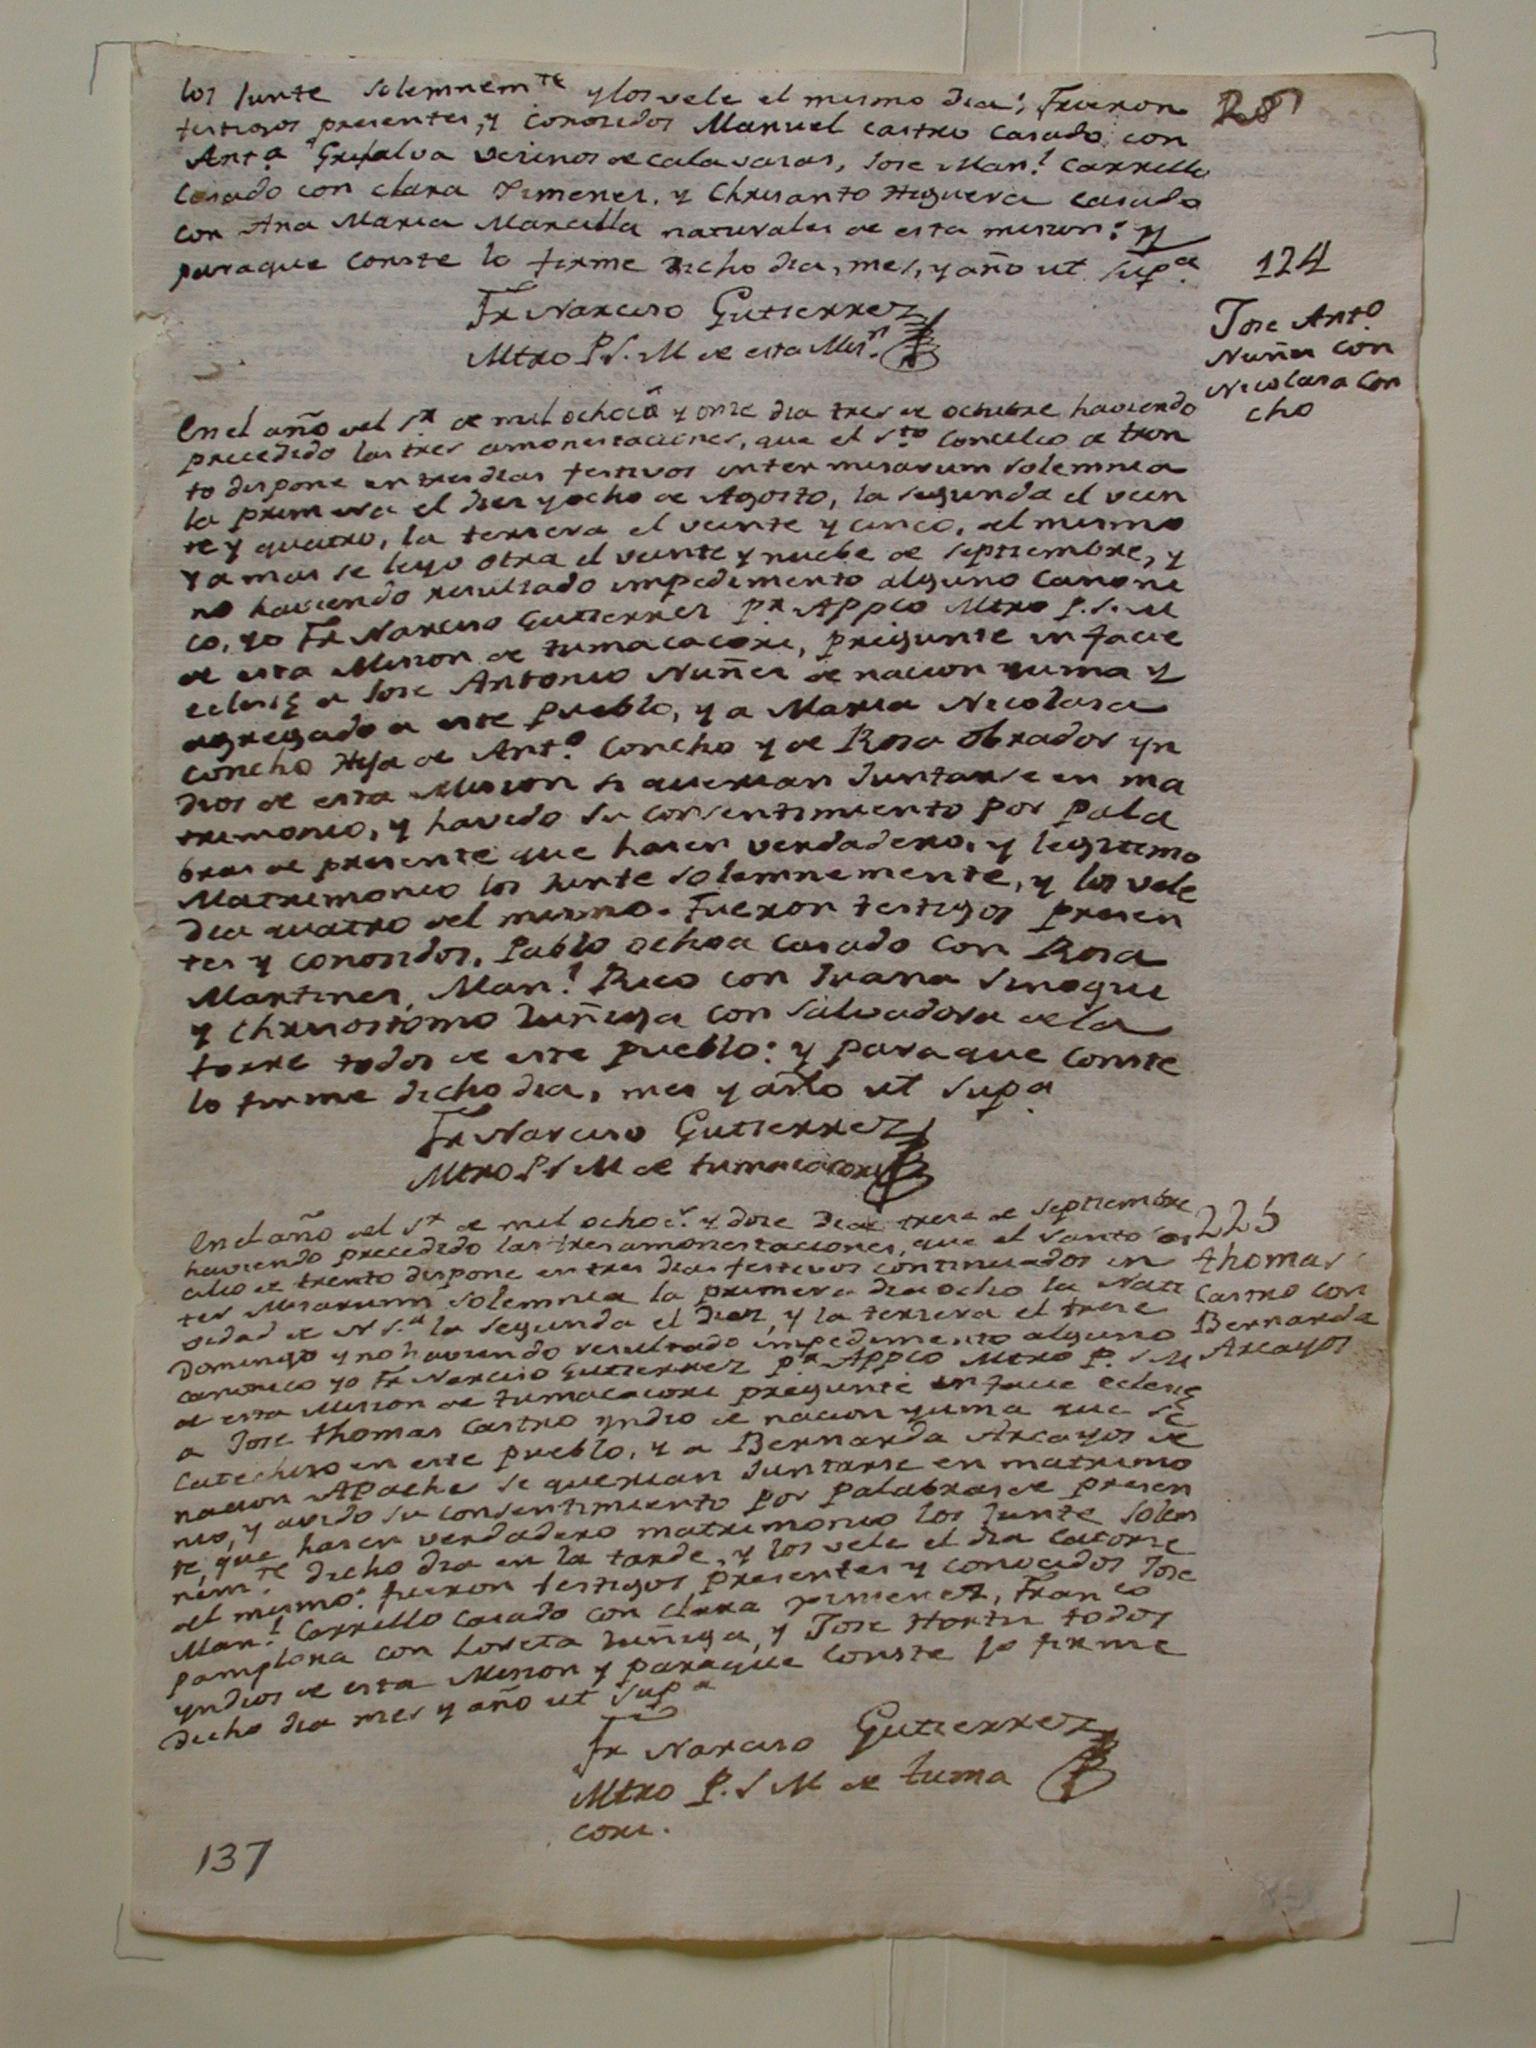 los Junte solemnem.te y los vele el mismo dia; Fueron
testigos presentes, y conosidos Manuel Castro casado con
Ant.a Grijalva vesinos de calavasas, Jose Man.l Carrello
casado con clara Ximenes, y Chrisanto Higuera casado
con Ana Maria Mancilla naturales de esta mision: y
paraque conste lo firme dicho dia, mes, y año ut sup.a
Fr Narciso Gutierrez
Mtro P. S. M de esta Mis.n
28
124
Jose Ant.o
Nuñes con
Nicolasa Con
cho
En el año del S.r de mil ochoc.s y onse dia tres de octubre haviendo
precedido las tres amonestaciones, que el S.to Concilio de tren
to dispone en tres dias festivos inter misarum solemnia
la primera el dies y ocho de Agosto, la segunda el vein
te y quatro, la tersera el veinte y cinco, del mismo
y a mas se leyo otra el veinte y nuebe de septiembre, y
no haviendo resultado impedimento alguno canoni
co, yo Fr Narciso Gutierrez P.r Appco Mtro P. S. M
de esta Mision de tumacacori, pregunte in facie
eclesię a Jose Antonio Nuñes de nacion yuma y
agregado a este pueblo, y a Maria Nicolasa
Concho Hija de Ant.o Concho y de Rosa obrador yn
dios de esta Mision si querian Juntarse en ma
trimonio, y havido su consentimiento por pala
bras de presente que hasen verdadero, y legitimo
Matrimonio los Junte solemnemente, y los vele
dia quatro del mismo. Fueron testigos presen
tes y conosidos, Pablo ochoa casado con Rosa
Martines, Man.l Rico con Juana Sinogui
y Chrisostomo Zuñiga con Salvadora de la
torre todos de este pueblo: y paraque conste
lo firme dicho dia, mes y año ut sup.a
Fr Narciso Gutierrez
Mtro P S M de tumacacori
En el año del S.r de mil ochoc.s y dose dia trese de septiembre
haviendo precedido las tres amonestaciones, que el santo con
cilio de trento dispone en tres dias festivos continuados in
ter Misarum solemnia la primera dia ocho la Nati
vidad de N S.ra la segunda el diez, y la tersera el trese
Domingo y no haviendo resultado impedimento alguno
canonico yo Fr Narciso Gutierrez P.r Appco Mtro P. S M
de esta Mision de tumacacori pregunte in facie eclesię
a Jose thomas Castro yndio de nacion yuma que se
catechiso en este pueblo, y a Bernarda Arcayos de
nacion Apache se querian Juntarse en matrimo
nio, y avido su consentimiento por palabras de presen
te, que hasen verdadero matrimonio los Junte solem
nem.te dicho dia en la tarde, y los vele el dia catorse
del mismo: fueron testigos presentes y conocidos Jose
Man.l Carrello casado con Clara ximenez, Fran.co
Pamplona con Loreta Zuñiga, y Jose Hortis todos
yndios de esta Mision y paraque conste lo firme
dicho dia mes y año ut sup.a
225
thomas
Castro con
Bernarda
Arcayos
Fr Narciso Gutierrez
Mtro P. S M de tuma
cori.
137